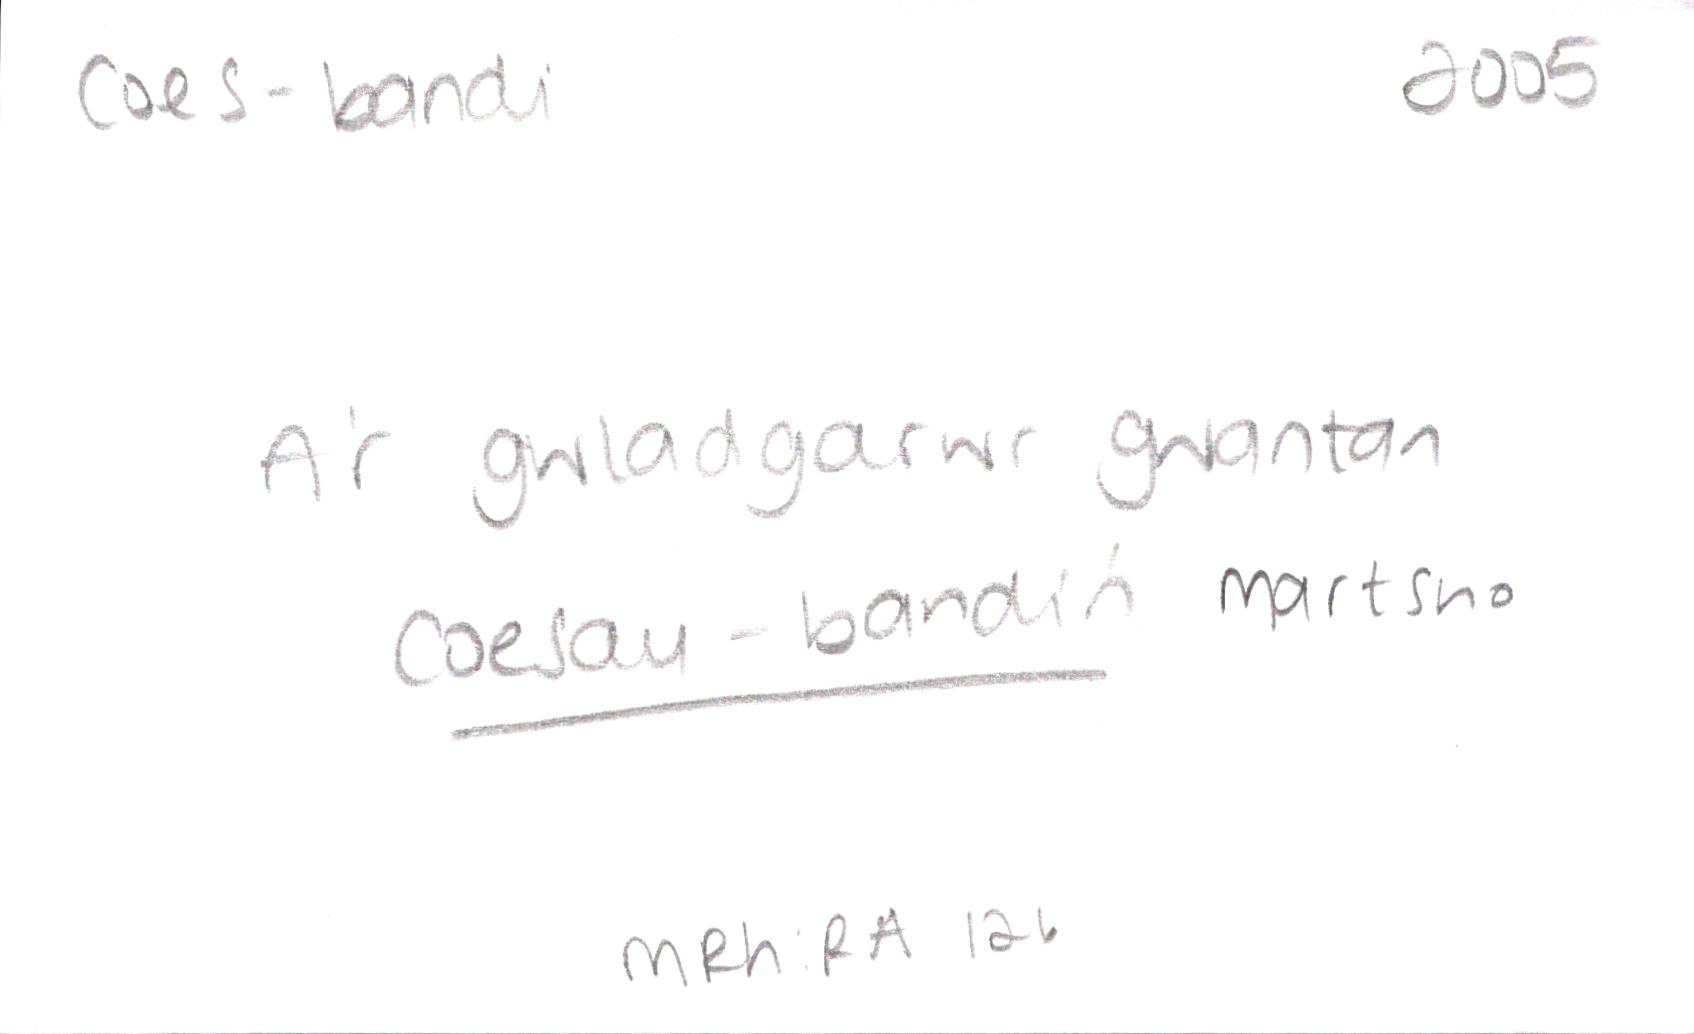 Coes-bandi 2005
A'r gwladgarwr gwantan
Coesau-bandi'n martsho
MRh:RA 126